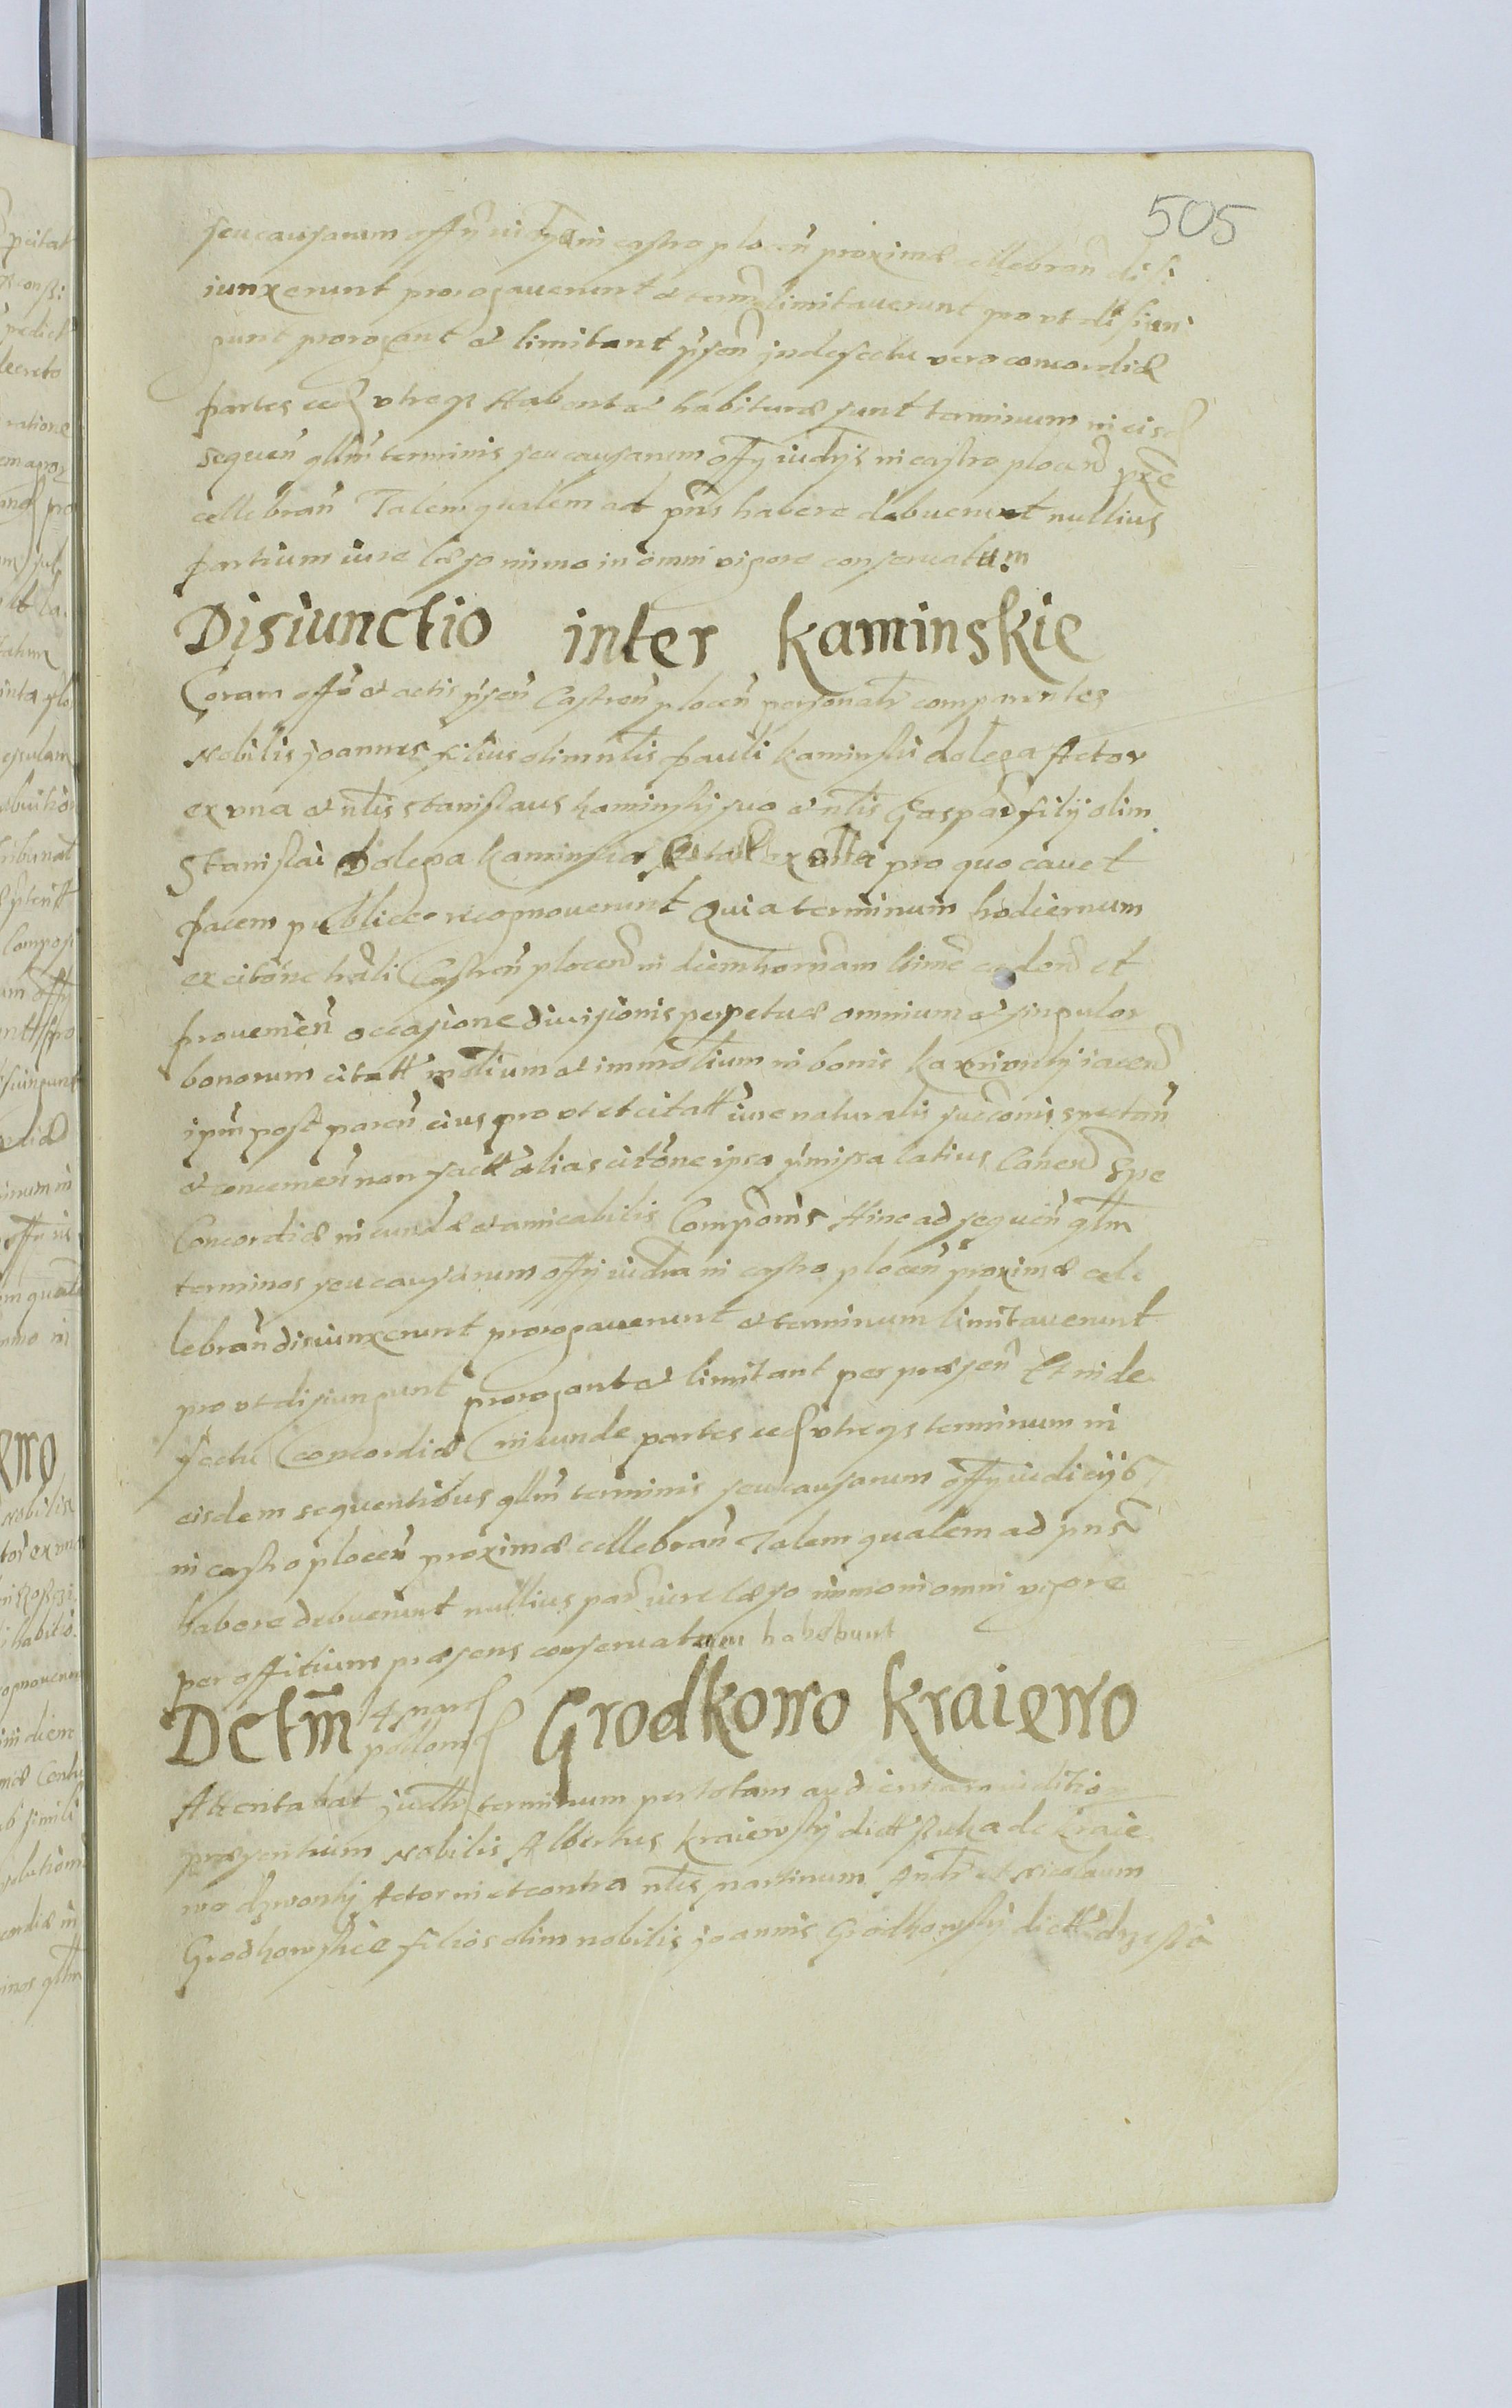 505
seu causarum offy iudya in castro plocen proximæ cellebran disi
iunxerunt prorogaverunt et term limitaverunt pro ut disiun
gunt prorogant et limitant psen in defectu vero concordiæ
partes eed utreqz Habent et habituræ sunt terminum in eisd
sequen qllm terminis seu causarum offy iudys in castro plocen
cellebran Talem qualem ad pns habere debuerunt nullius
partium iure læso immo in omni vigore conservatum
Disiunctio inter Kaminskie
Coram offo et actis psen Castren plocen personalr comparentes
Nobilis Joannes filius olim nlis Pauli Kaminski dolega Actor
ex una et nlis Stanislaus Kaminsky suo et nlis Gaspar fily olim
Stanislai Dolega Kaminskia ex altera pro quo cavet
facem publice recognoverunt Quia terminum hodiernum
ex citone hrali Castren plocen in diem hornam caden et
provenien occasione divisionis perpetuæ omnium et singulor
bonorum citatt mobilium et immobilium in bonis Kaminsky iacen
ipm post paren eius pro ut et citatt iure naturalis succonis spectan
et concernen non factt alias citone ipsa pmissa latius Canen Spe
Concordiæ ineundæ et amicabilis Componis Hinc ad sequen qllm
terminos seu causarum offy iudia in castro plocen proximæ cele
lebran disiunxerunt prorogaverunt et terminum limitaverunt
pro ut disiungunt prorogant et limitant per præsen Et in de
fectu Concordiæ ineundæ partes eed utreqz terminum in
eisdem sequentibus qllm terminis seu causarum offy iudicijs
in castro plocen proximæ cellebran Talem qualem ad pns
habere debuerunt nullius par iure læso immo in omni vigore
per offitium præsens conservatum habebunt
Dctm Grodkowo Kraiewo
Attentabat terminum per totam audientiam iuditio
præsentium Nobilis Albertus Kraiewsky dictt de Kraie
wo Actor in et contra nlis Martinum Andr et Nicolaum
Grodkowskie filios olim nobilis Joannis Grodkowsky dictt